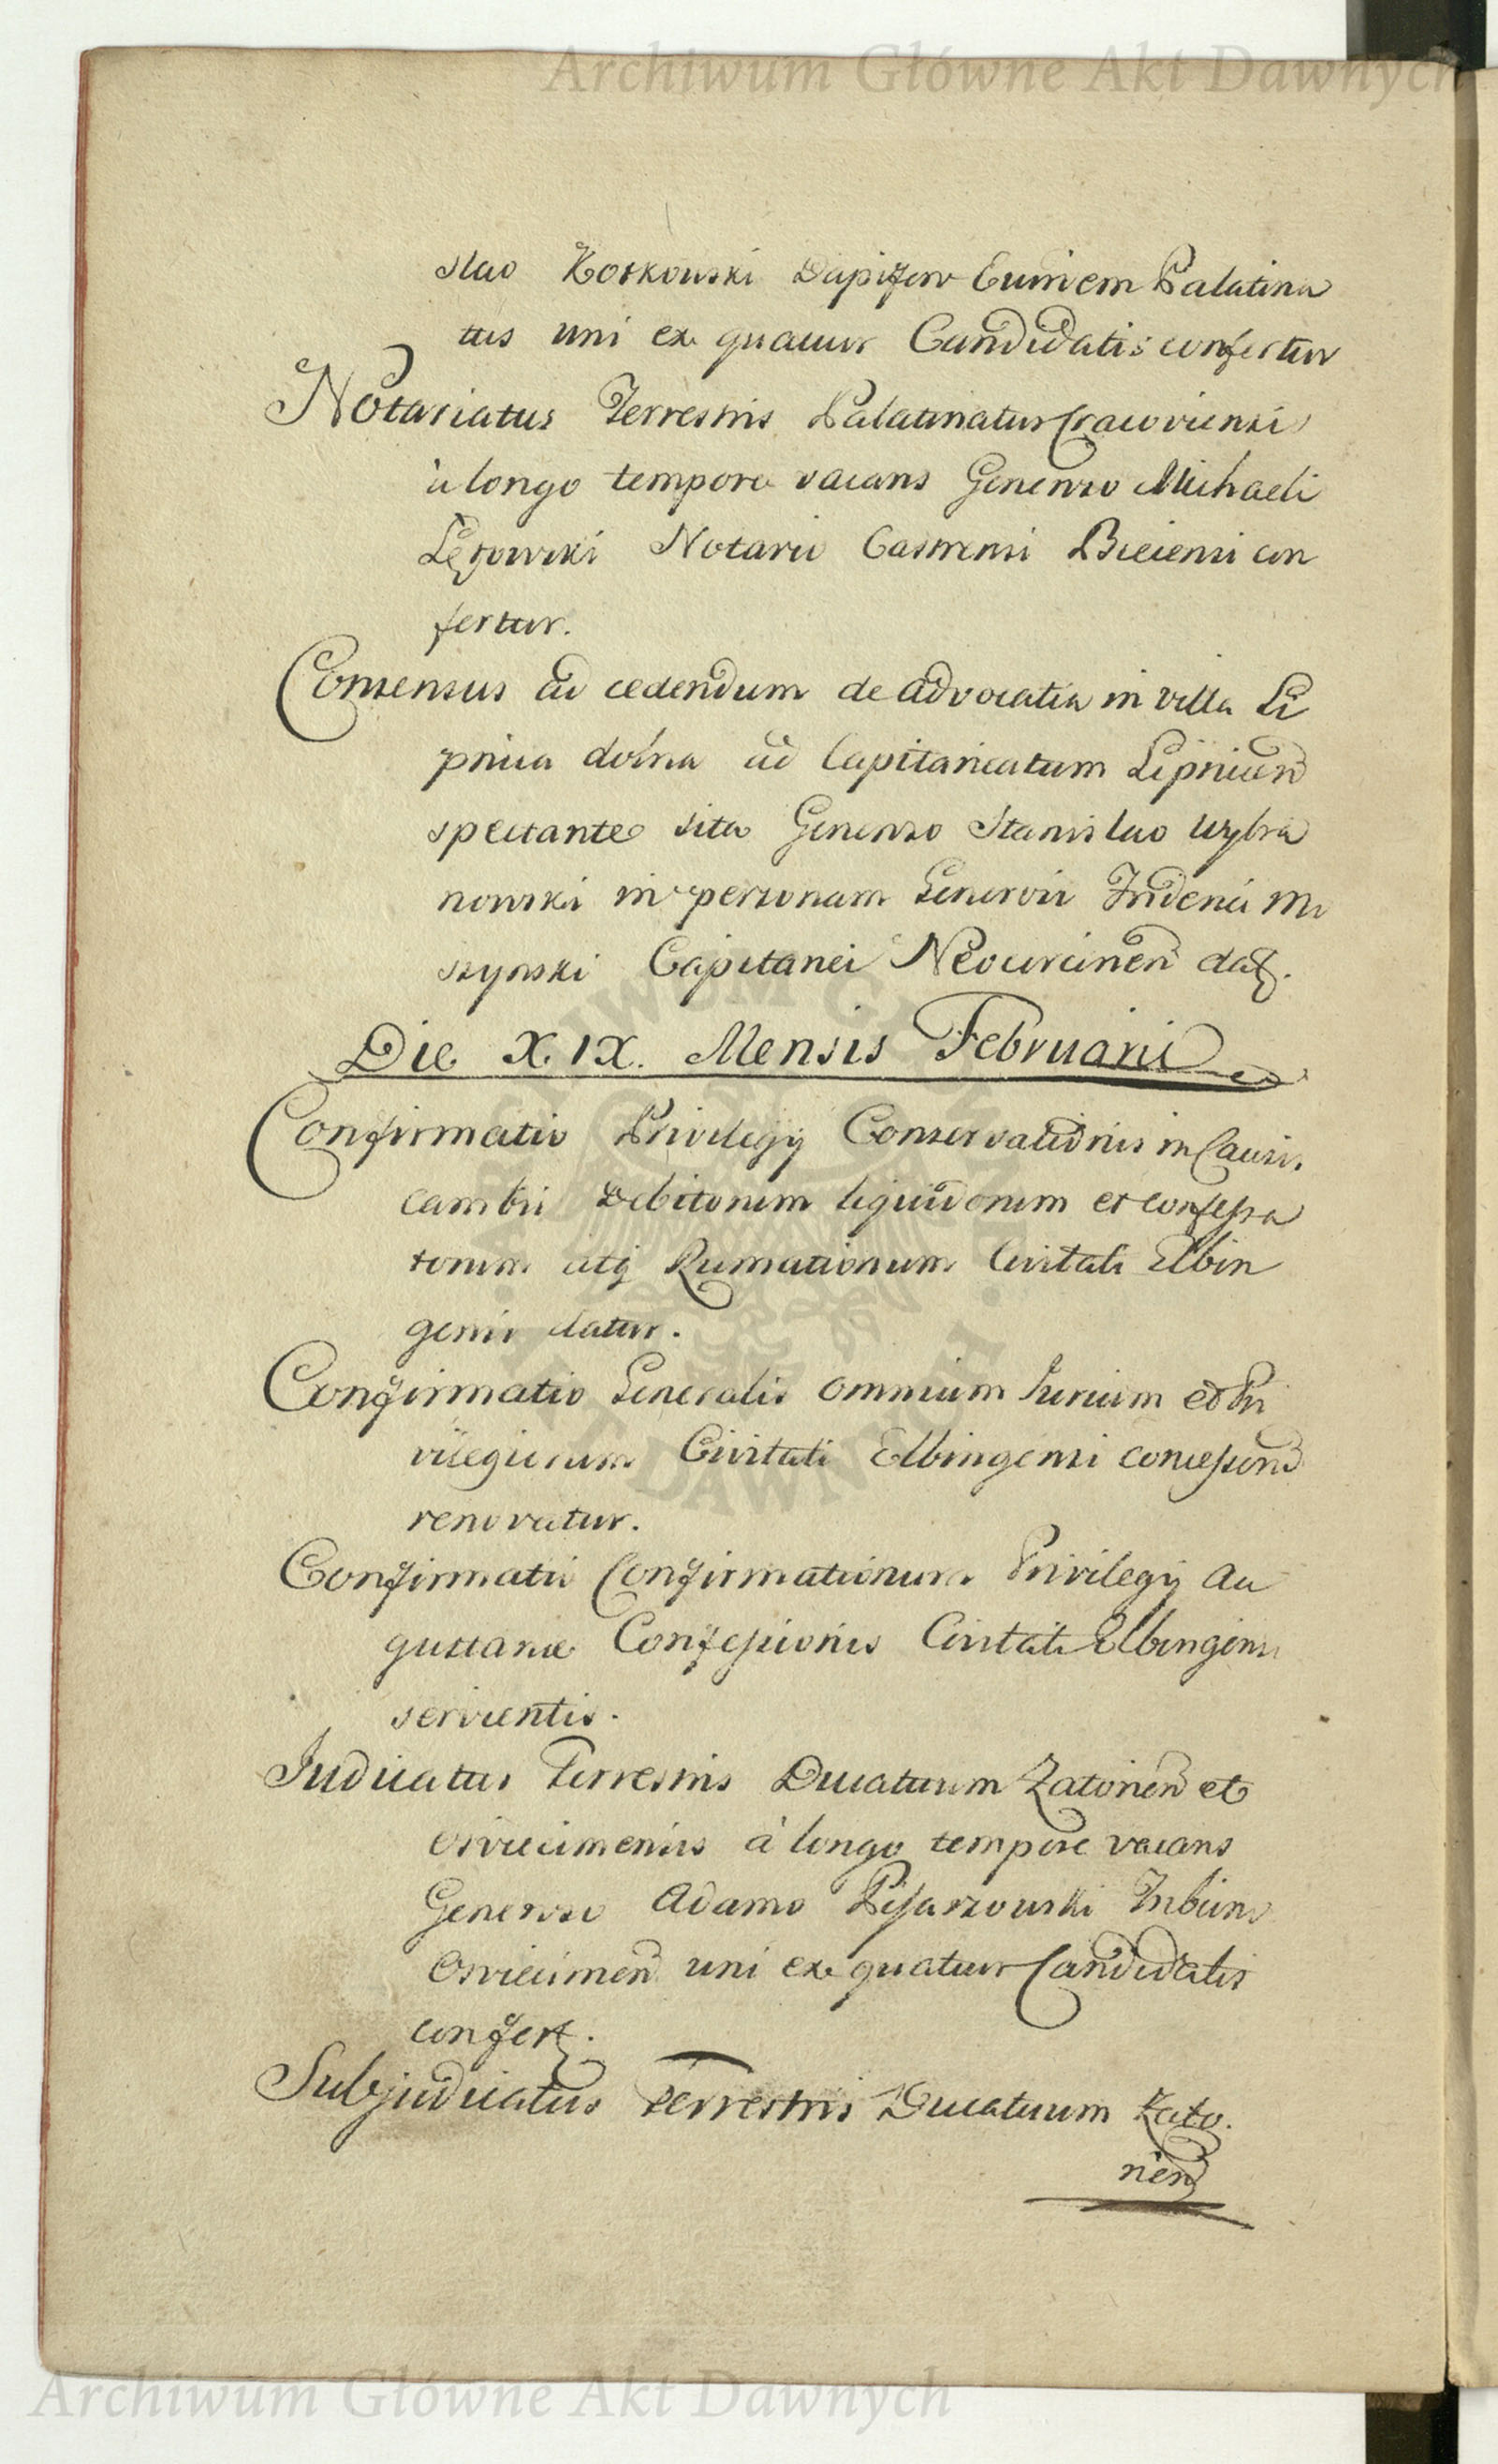 Archiwum Główne Akt Dawnych
slao Koskowski Dapifero Eiusdem Palatina
tus uni ex quatuor Candidatis confertur
Notariatus Terrestris Palatinatus Cracoviensi
à longo tempore vacans Generoso Michaeli
Łętowski Notario Castrensi Biecensi con
fertur.
Consensus ad cedendum de advocatia in villa Li
pnica dolna ad Capitaneatum Lipnicen
spectante sita Generoso Stanislao Wybra
nowski in personam Generosi Friderici Mo
szynski Capitanei Neocorcinen dat.
Die X.IX. Mensis Februarii
Confirmatio Privilegij Conservationis in Causis
cambii Debitorum liquidorum et confessa
torum atq Rumationum Civitati Elbin
gensi datur.
Confirmatio Generalis omnium Jurium et Pri
vilegiorum Civitati Elbingensi concessorum
renovatur.
Confirmatio Confirmationum Privilegij Au
gustanæ Confessionis Civitati Elbingensi
servientis.
Judicatus Terrestris Ducatuum Zatorien et
Osviecimensis à longo tempore vacans
Generoso Adamo Pisarzowski Tribuno
Osviecimen uni ex quatuor Candidatis
confert.
Subjudicatus Terrestris Ducatuum Zato.
rien
Archiwum Główne Akt Dawnych